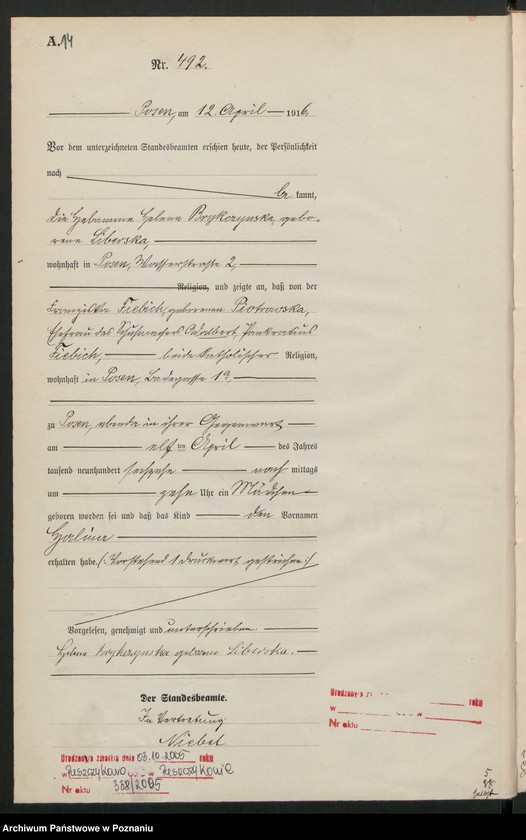 A. 14
Nr. 492.
Posen, am 12. April 1916
Vor dem unterzeichneten Standesbeamten erschien heute, der Persönlichkeit
nach
be kannt,
die Hebamme Helene Brykczynska, gebo-
rene Liberska,
wohnhaft in Posen, Wasserstraße 2,
Religion, und zeigte an, daß von der
Franziska Fiebich, geborenen Piotrowska,
Ehefrau des Adalbert, Pankratius
Fiebich, beide katholischer Religion,
wohnhaft in Posen, Badegasse 1a,
zu Posen, ebenda in ihrer Gegenwart
am elf ten April des Jahres
tausend neunhundert sechzehn nach mittags
um zehn Uhr ein Mädchen
geboren worden sei und daß das Kind den Vornamen
Halina
erhalten habe. (Vorstehend 1 Druckwort gestrichen.)
Vorgelesen, genehmigt und unterschrieben.
Helene Brykczynska geborene Liberska.
Der Standesbeamte.
In Vertretung
Niebel
Urodzony/a roku
w
Nr aktu
Urodzony/a zmarł/a dnia 03.10.2005 roku
w w
Nr aktu 328/2005
Archiwum Państwowe w Poznaniu